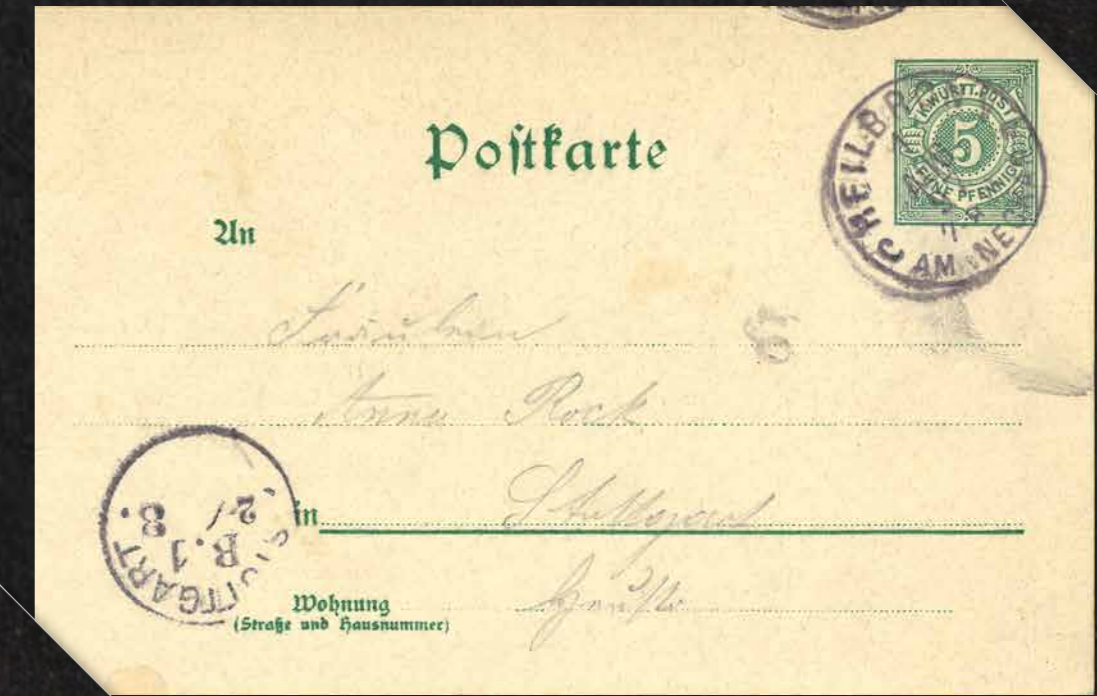 Postkarte
K.WÜRTT.POST
5
FÜNF PFENNIG
HEILBRONN
AM NECKAR
An
Fräulein
6
Anna Rock
in Stuttgart
STUTTGART
B.1
Wohnung
(Straße und Hausnummer)